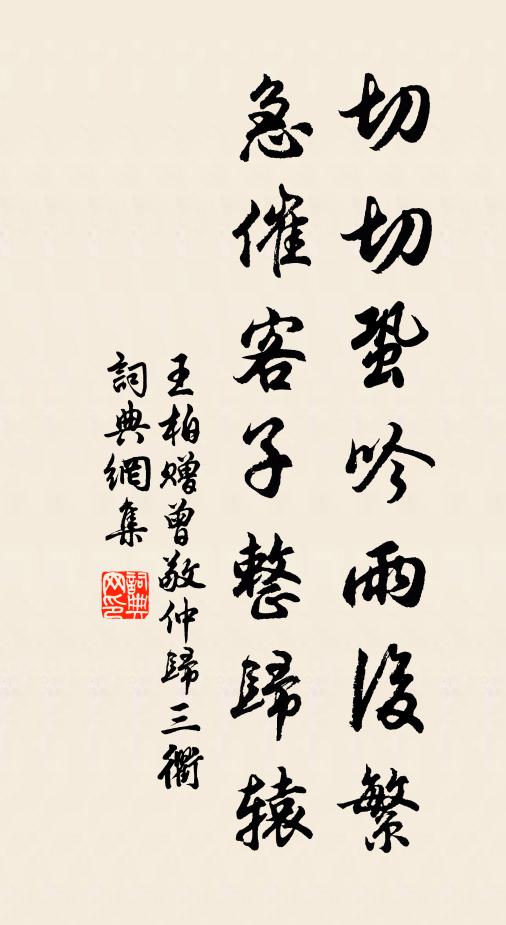 切切蛩吟雨後繁
急催客子整歸辕
王柏贈曾敬仲歸三衢
詞典網集
詞典网印